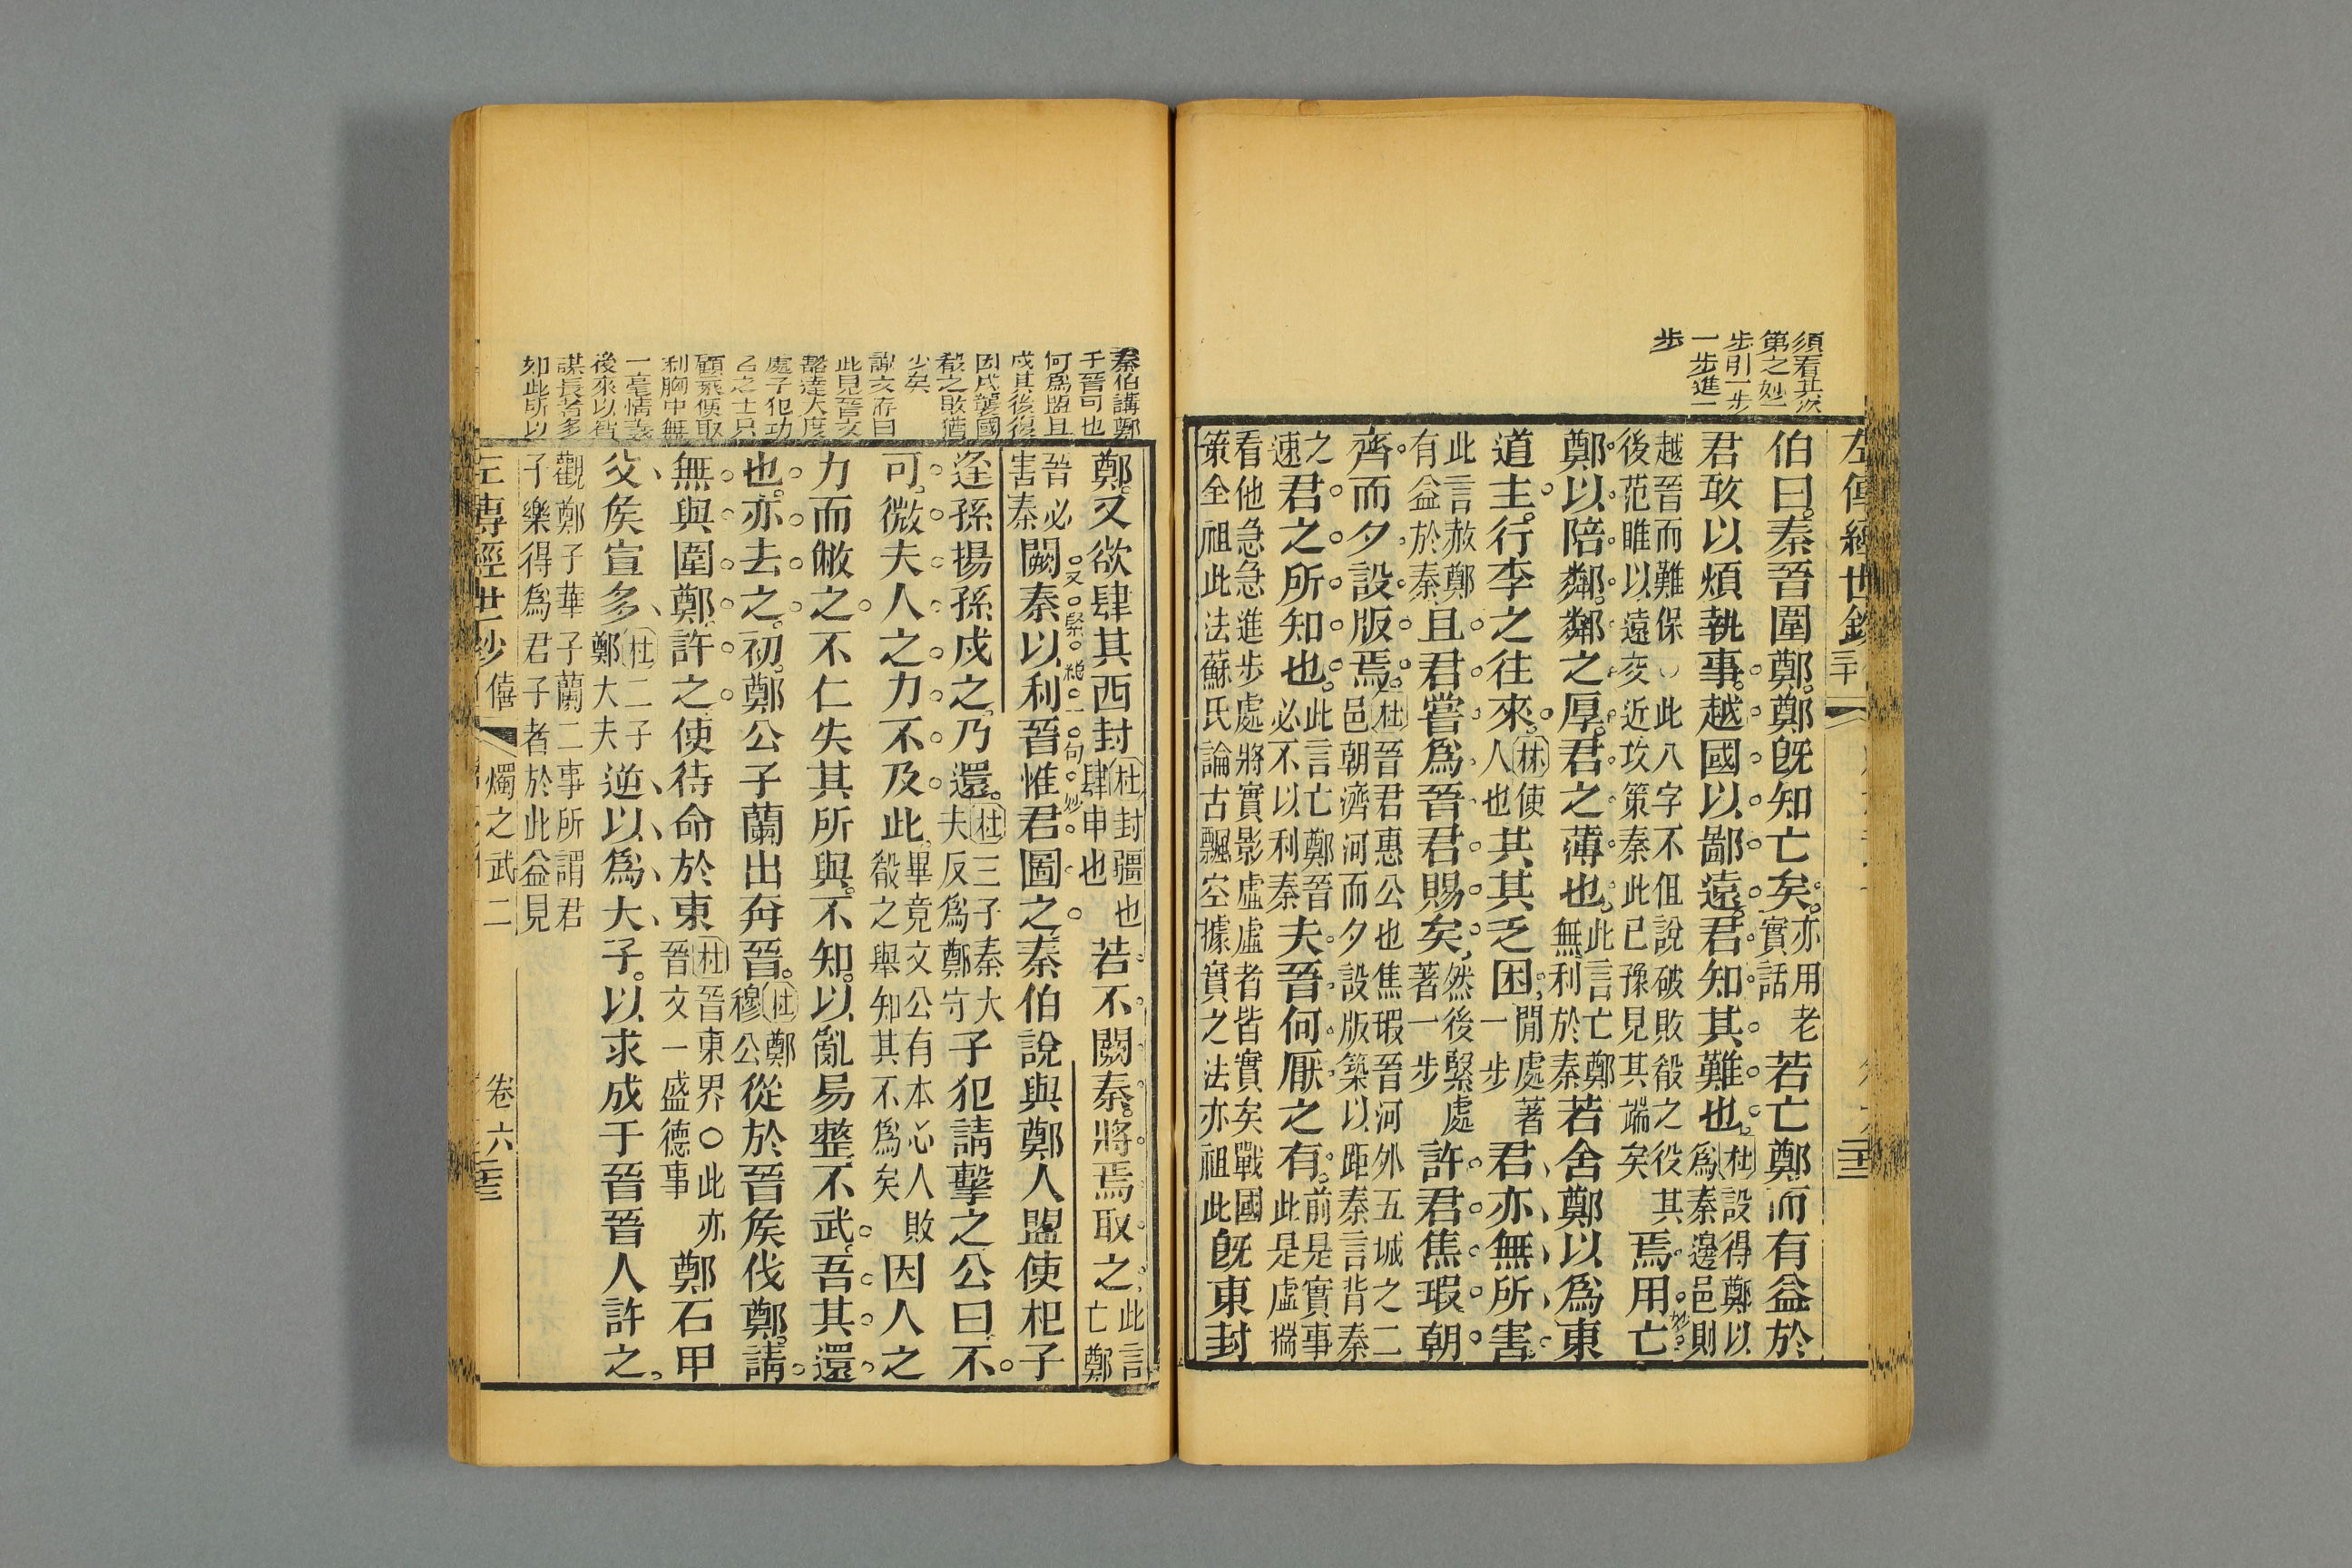 須看其次
第之妙一
步引一步
一步進一
步
伯曰秦晉圍鄭鄭既知亡矣亦用老實話若亡鄭而有益於
君敢以煩執事越國以鄙遠君知其難也杜設得鄭以為秦邊邑則
越晉而難保○此八字不但說破敗殽之役其後范睢以遠交近攻策秦此已豫見其端矣焉用亡妙
鄭以陪鄰鄰之厚君之薄也此言亡鄭無利於秦若舍鄭以為東
道主行李之往來林使人也共其乏困閒處著一步君亦無所害
此言赦鄭有益於秦且君嘗為晉君賜矣然後緊處著一步許君焦瑕朝
濟而夕設版焉杜晉君惠公也焦瑕晉河外五城之二邑朝濟河而夕設版築以距秦言背秦
之速君之所知也此言亡鄭晉必不以利秦夫晉何厭之有前是實事此是虛揣
看他急急進步處將實影虛虛者皆實矣戰國策全祖此法蘇氏論古飄空據實之法亦祖此既東封
左傳經世鈔
秦伯講鄭
于晉可也
何為盟且
戍其後復
因戍襲國
殽之敗猶
少矣
謝文洊曰
此見晉文
豁達大度
處子犯功
名之士只
顧乘便取
利胸中無
一毫情義
後來以智
謀長者多
如此所以
鄭又欲肆其西封杜封疆也肆申也若不闕秦將焉取之此言亡鄭
晉必害秦闕秦以利晉惟君圖之秦伯說與鄭人盟使杞子
又緊穐一句妙
逢孫揚孫戍之乃還杜三子秦大夫反為鄭守子犯請擊之公曰不
可微夫人之力不及此畢竟文公有本心人敗殽之舉知其不為矣因人之
力而敝之不仁失其所與不知以亂易整不武吾其還
也亦去之初鄭公子蘭出奔晉杜鄭穆公從於晉侯伐鄭請
無與圍鄭許之使待命於東杜晉東界○此亦晉文一盛德事鄭石甲
父侯宣多杜二子鄭大夫逆以為大子以求成于晉晉人許之
觀鄭子華子蘭二事所謂君子樂得為君子者於此益見
左傳經世鈔 僖 燭之武二 卷六